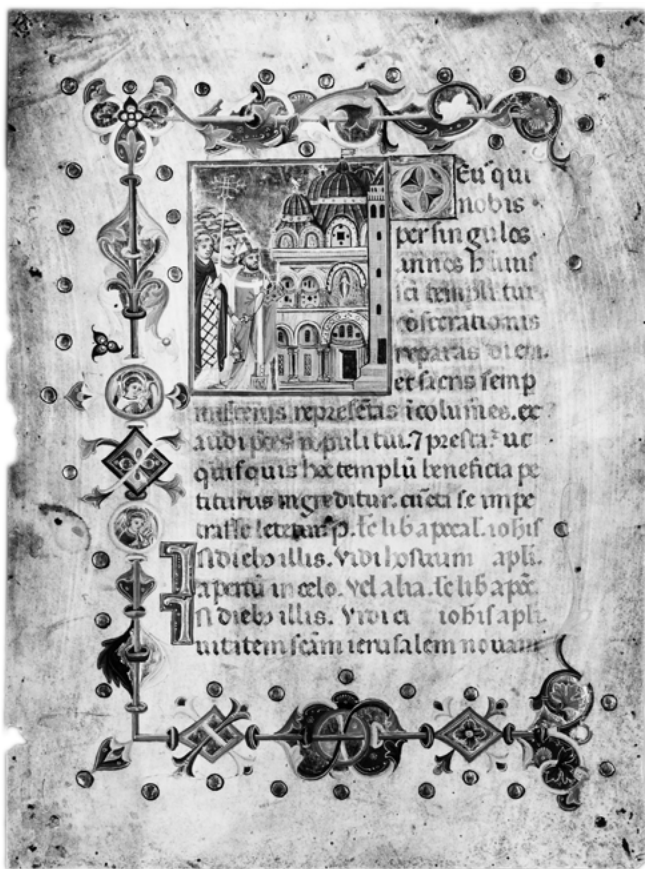 Deus qui
nobis
per singulos
annos huius
sci templi tui
cōsecrationis
reparas diem.
et sacris semp
mysteriis represētas īcolumes. ex
audi p̄ces populi tui. ⁊ presta. ut
quisquis hoc templū beneficia pe
titurus ingreditur. cūcta se impe
trasse letetur. p. lc̄ lib apocal. iohis
In diebꝫ illis. Vidi hostium apli.
apertū in celo. Vel alia. lc̄ lib apoc̄.
In diebꝫ illis. Vidi ci iohis apli.
uitatem scām ierusalem nouam